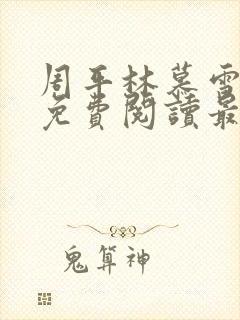 周平林慕雪
免費閱讀最
鬼算神